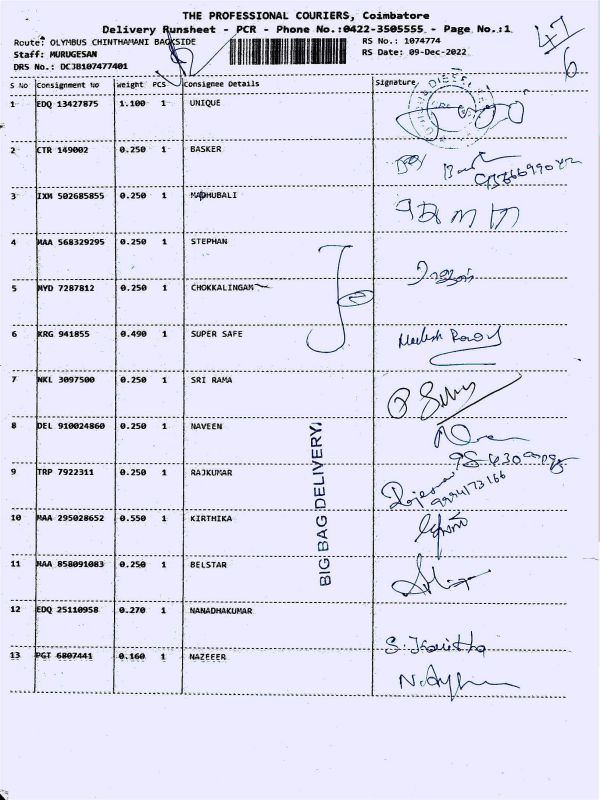 THE PROFESSIONAL COURIERS, Coimbatore
Delivery Runsheet - PCR - Phone No.:0422-3505555 - Page No.:1
Route: OLYMBUS CHINTHAMANI BACKSIDE
RS No.: 1074774
Staff: MURUGESAN
RS Date: 09-Dec-2022
DRS No.: DCJB107477401
47
6
S No Consignment No Weight PCS Consignee Details Signature
1 EDQ 13427875 1.100 1 UNIQUE
2 CTR 149002 0.250 1 BASKER
3 IXM 502685855 0.250 1 MADHUBALI
4 MAA 568329295 0.250 1 STEPHAN
5 MYD 7287812 0.250 1 CHOKKALINGAM
6 KRG 941855 0.490 1 SUPER SAFE
7 NKL 3097500 0.250 1 SRI RAMA
8 DEL 910024860 0.250 1 NAVEEN
9 TRP 7922311 0.250 1 RAJKUMAR
9994173166
10 MAA 295028652 0.550 1 KIRTHIKA
11 MAA 858091083 0.250 1 BELSTAR
12 EDQ 25110958 0.270 1 NANADHAKUMAR
S. Kavitha
13 PGT 6807441 0.160 1 NAZEEER
BIG BAG DELIVERY